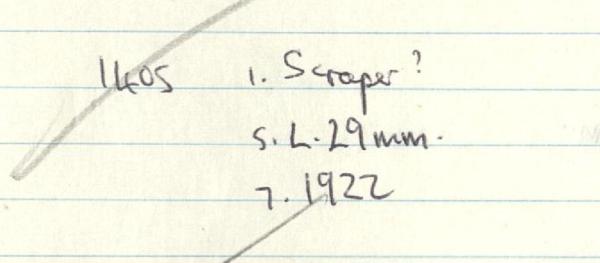 1405 1. Scraper?
5. L. 29mm.
7. 1922